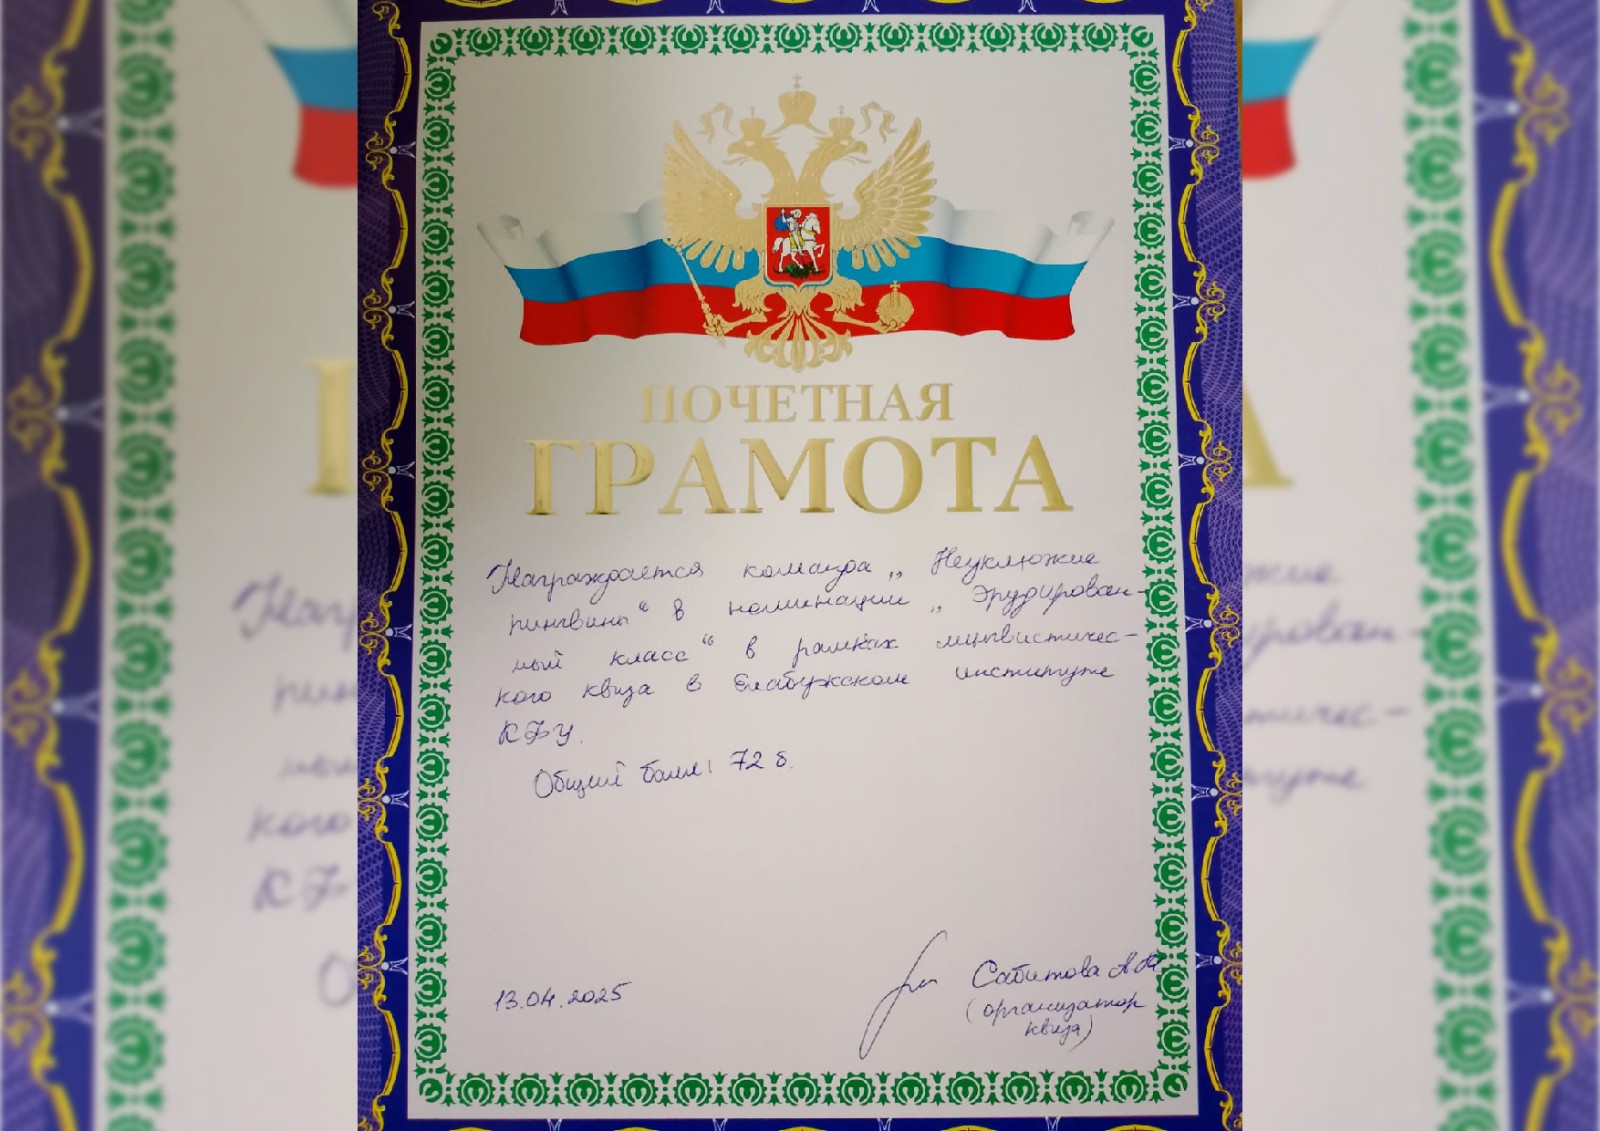 ПОЧЕТНАЯ
ГРАМОТА
Награждается команда „Неуклюжие
пингвины“ в номинации „Эрудирован-
ный класс“ в рамках лингвистичес-
кого квиза в Елабужском институте
КФУ.
Общий балл: 72 б.
13.04.2025
Сабитова А.
(организатор
квиза)